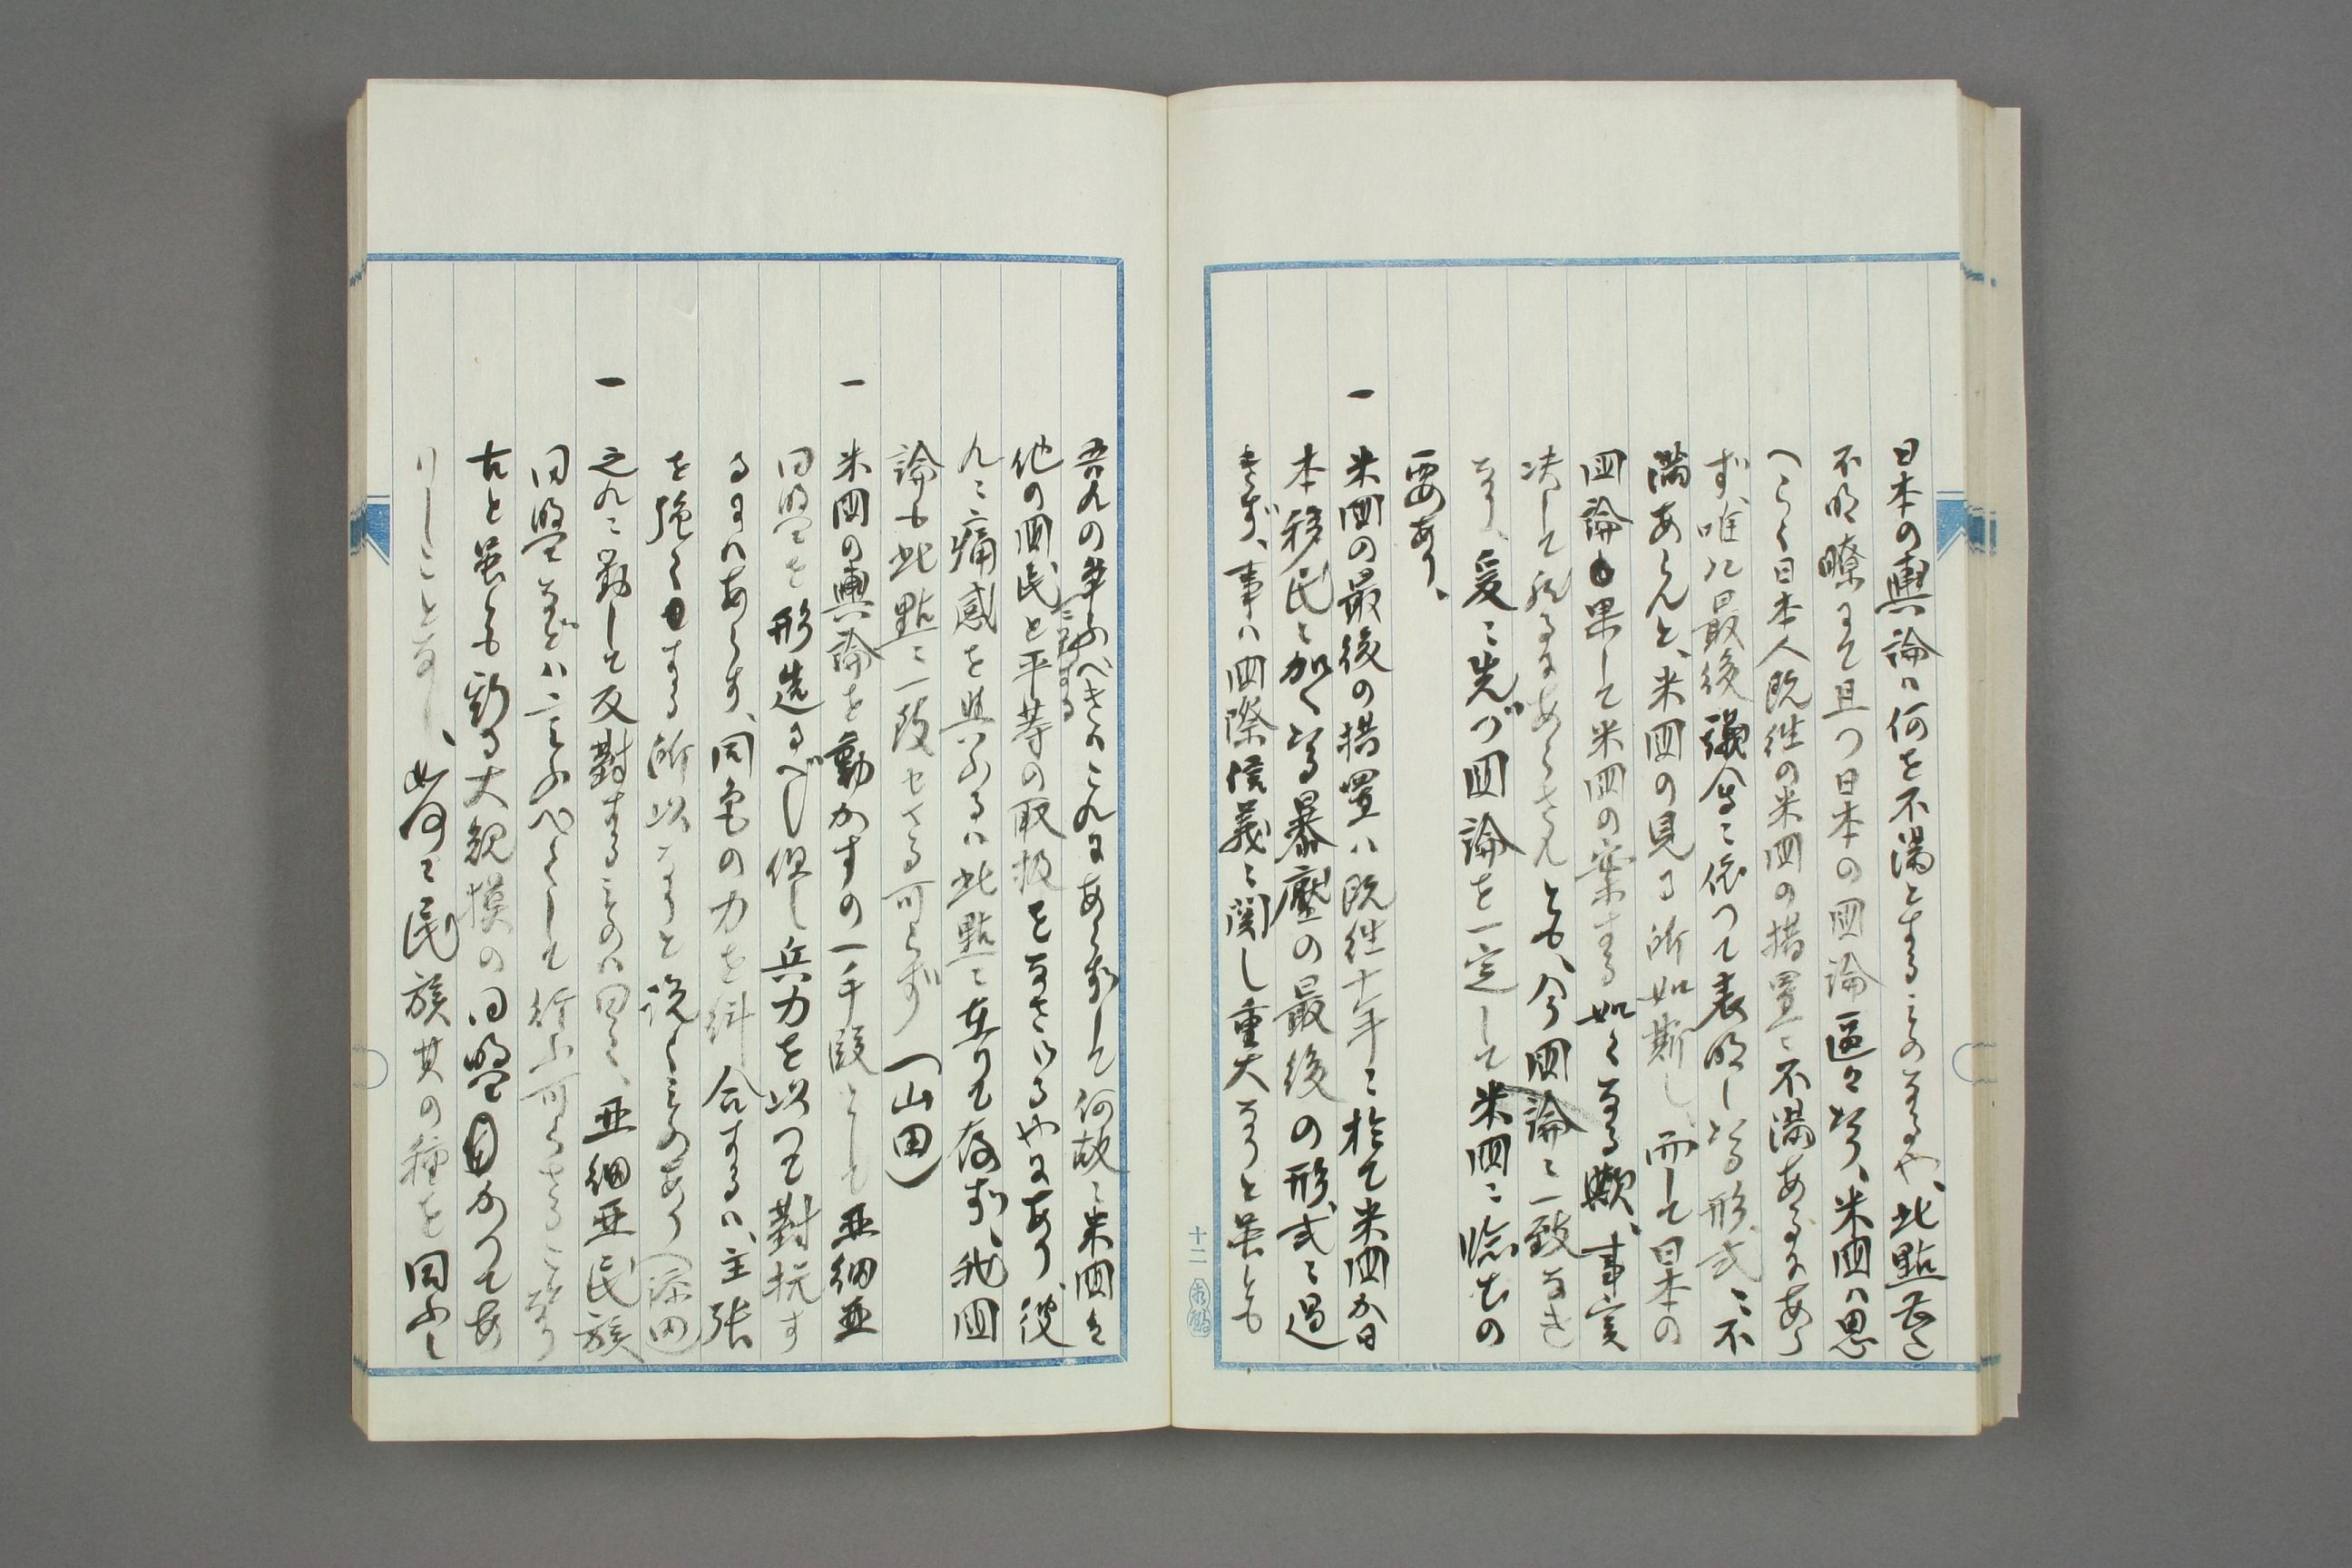 日本の輿論は何を不満とするものなるや、此點甚だ
不明瞭にて且つ日本の囯論區々なり、米囯ハ思
へらく日本人既往の米囯の措置ニ不満あるにあら
ず、唯に最後議會ニ依つて表明しなる形式ニ不
満あらんと、米囯の見る所如斯し、而して日本の
囯論も果して米囯の案する如くなる歟、事実
决して然るにあらさんとも、今囯論ニ一致なき
なり、爰ニ先づ囯論を一定して米囯ニ臨むの
要あり、
一 米囯の最後の措置ハ既往十年ニ於て米囯か日
本移民ニ加へなる暴壓の最後の形式ニ過
きず、事ハ囯際信義ニ関し重大なりと虽とも
十二
吾人の争ふべきハこれにあらずして何故ニ米囯は
ニ對する
他の囯民と平等の取扱をなさゞるやにあり、彼
れニ痛感を與ふるハ此點ニ在りて存ず、我囯
論も此點ニ一致せさる可らず（山田）
一 米囯の輿論を動かすの一手段として亜細亜
同盟を形造るべし但し兵力を以つて對抗す
るにハあらす、同色の力を糾合するハ、主張
を強くする所以なりと説くものあり（添田）
一 之れニ對して反對するものハ曰く、亜細亜民族
同盟などハ言ふべくして行ふ可らさることなり
古と虽とも斯る大規模の同盟曽かつてあ
りしことなし、如何ニ民族其の種を同ふし